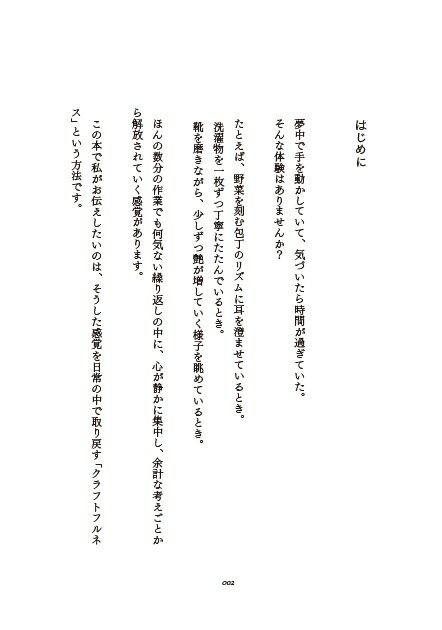 はじめに
夢中で手を動かしていて、気づいたら時間が過ぎていた。
そんな体験はありませんか？
たとえば、野菜を刻む包丁のリズムに耳を澄ませているとき。
洗濯物を一枚ずつ丁寧にたたんでいるとき。
靴を磨きながら、少しずつ艶が増していく様子を眺めているとき。
ほんの数分の作業でも何気ない繰り返しの中に、心が静かに集中し、余計な考えごとか
ら解放されていく感覚があります。
この本で私がお伝えしたいのは、そうした感覚を日常の中で取り戻す「クラフトフルネ
ス」という方法です。
002